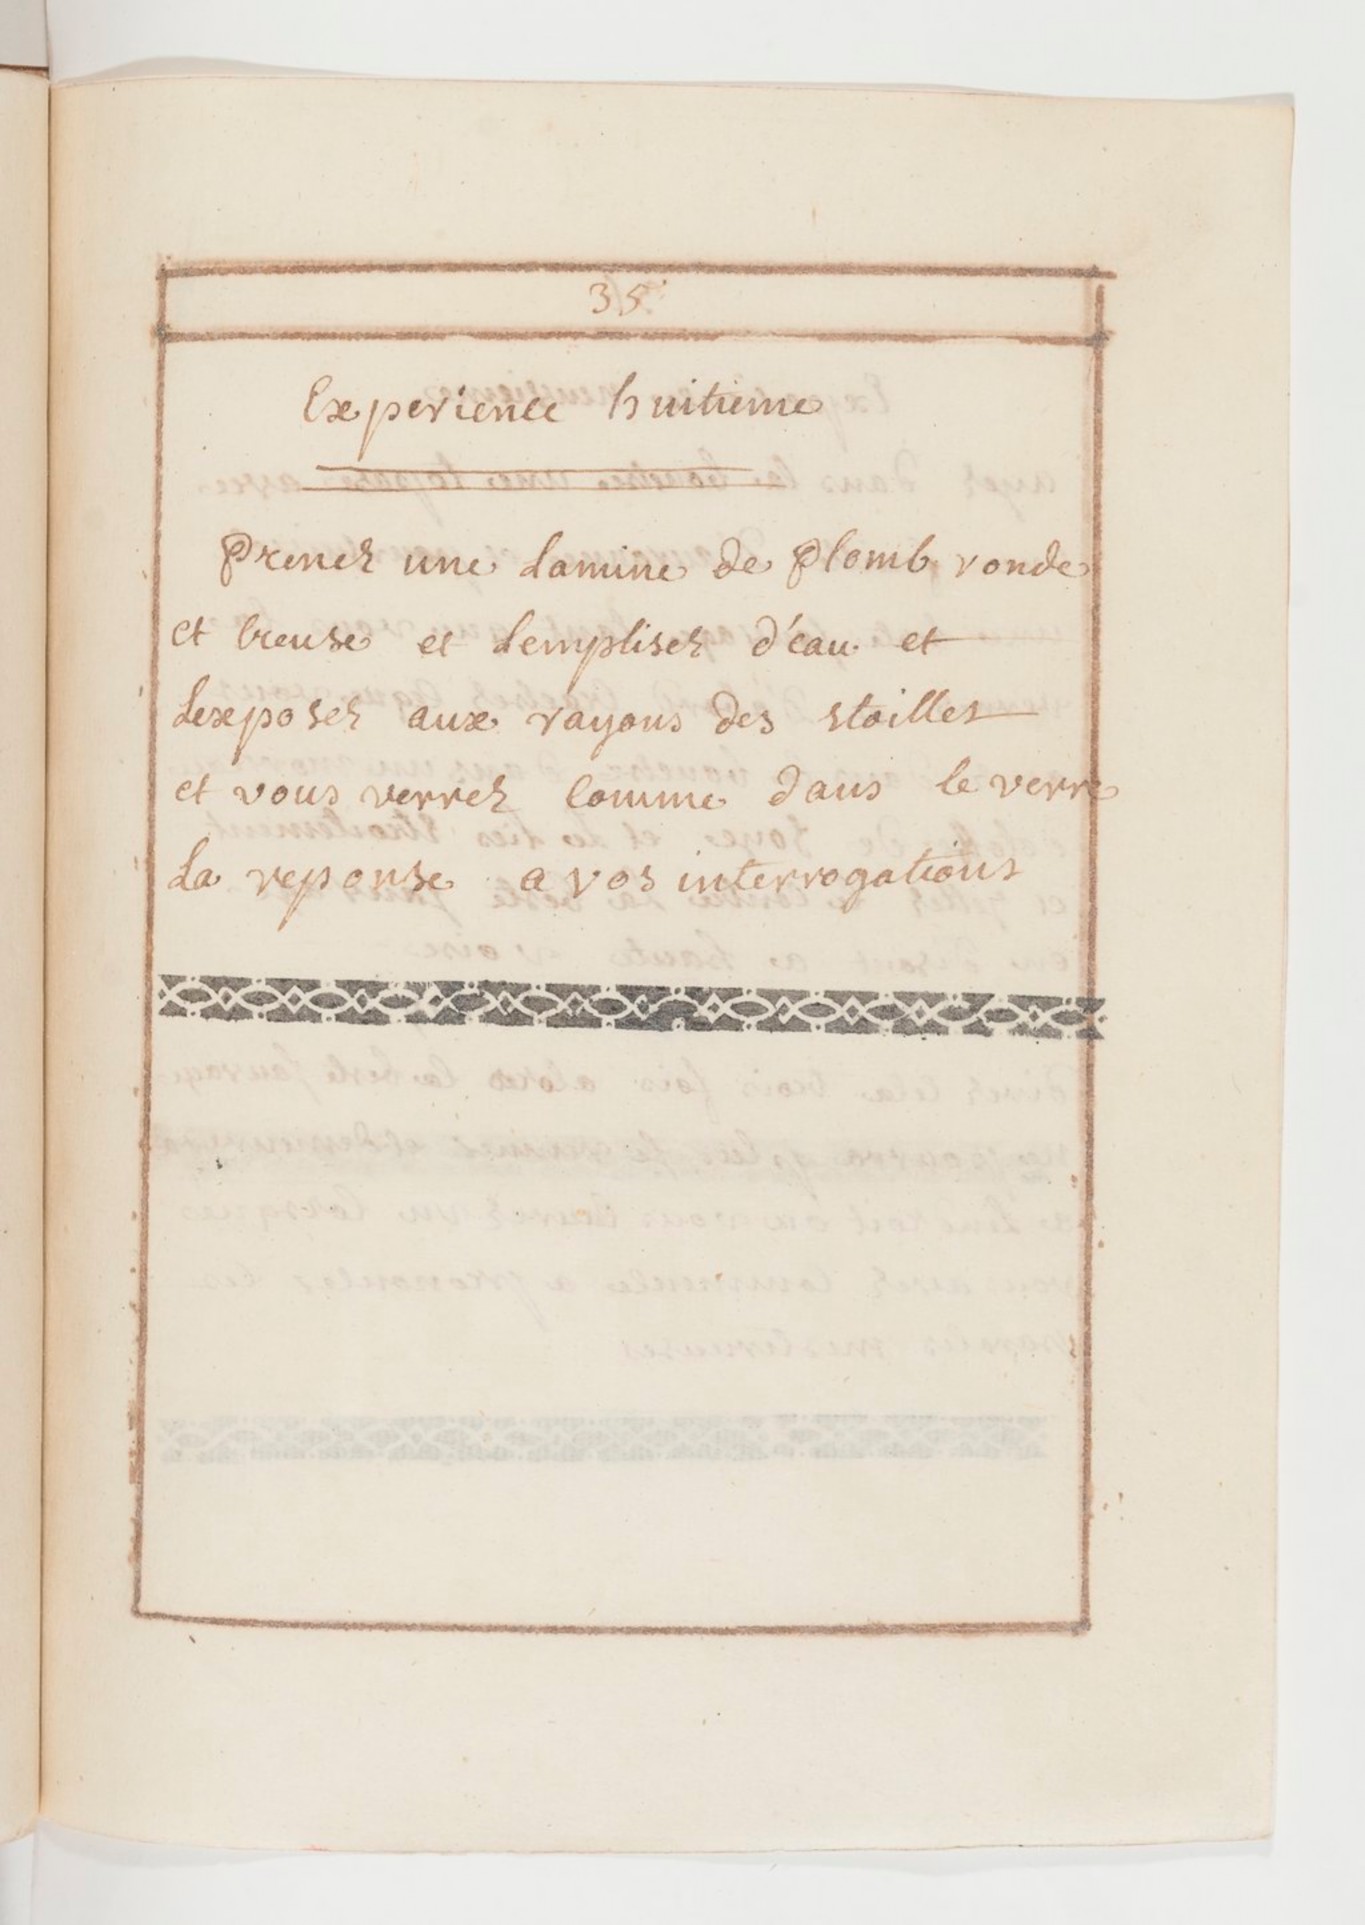 35.
Experience huitieme
Prenez une Lamine de Plomb ronde
et creuse et Lemplisez d'éau et
Lexposez aux rayons des stoilles
et vous verrez comme dans le verre
La reponse a vos interrogations